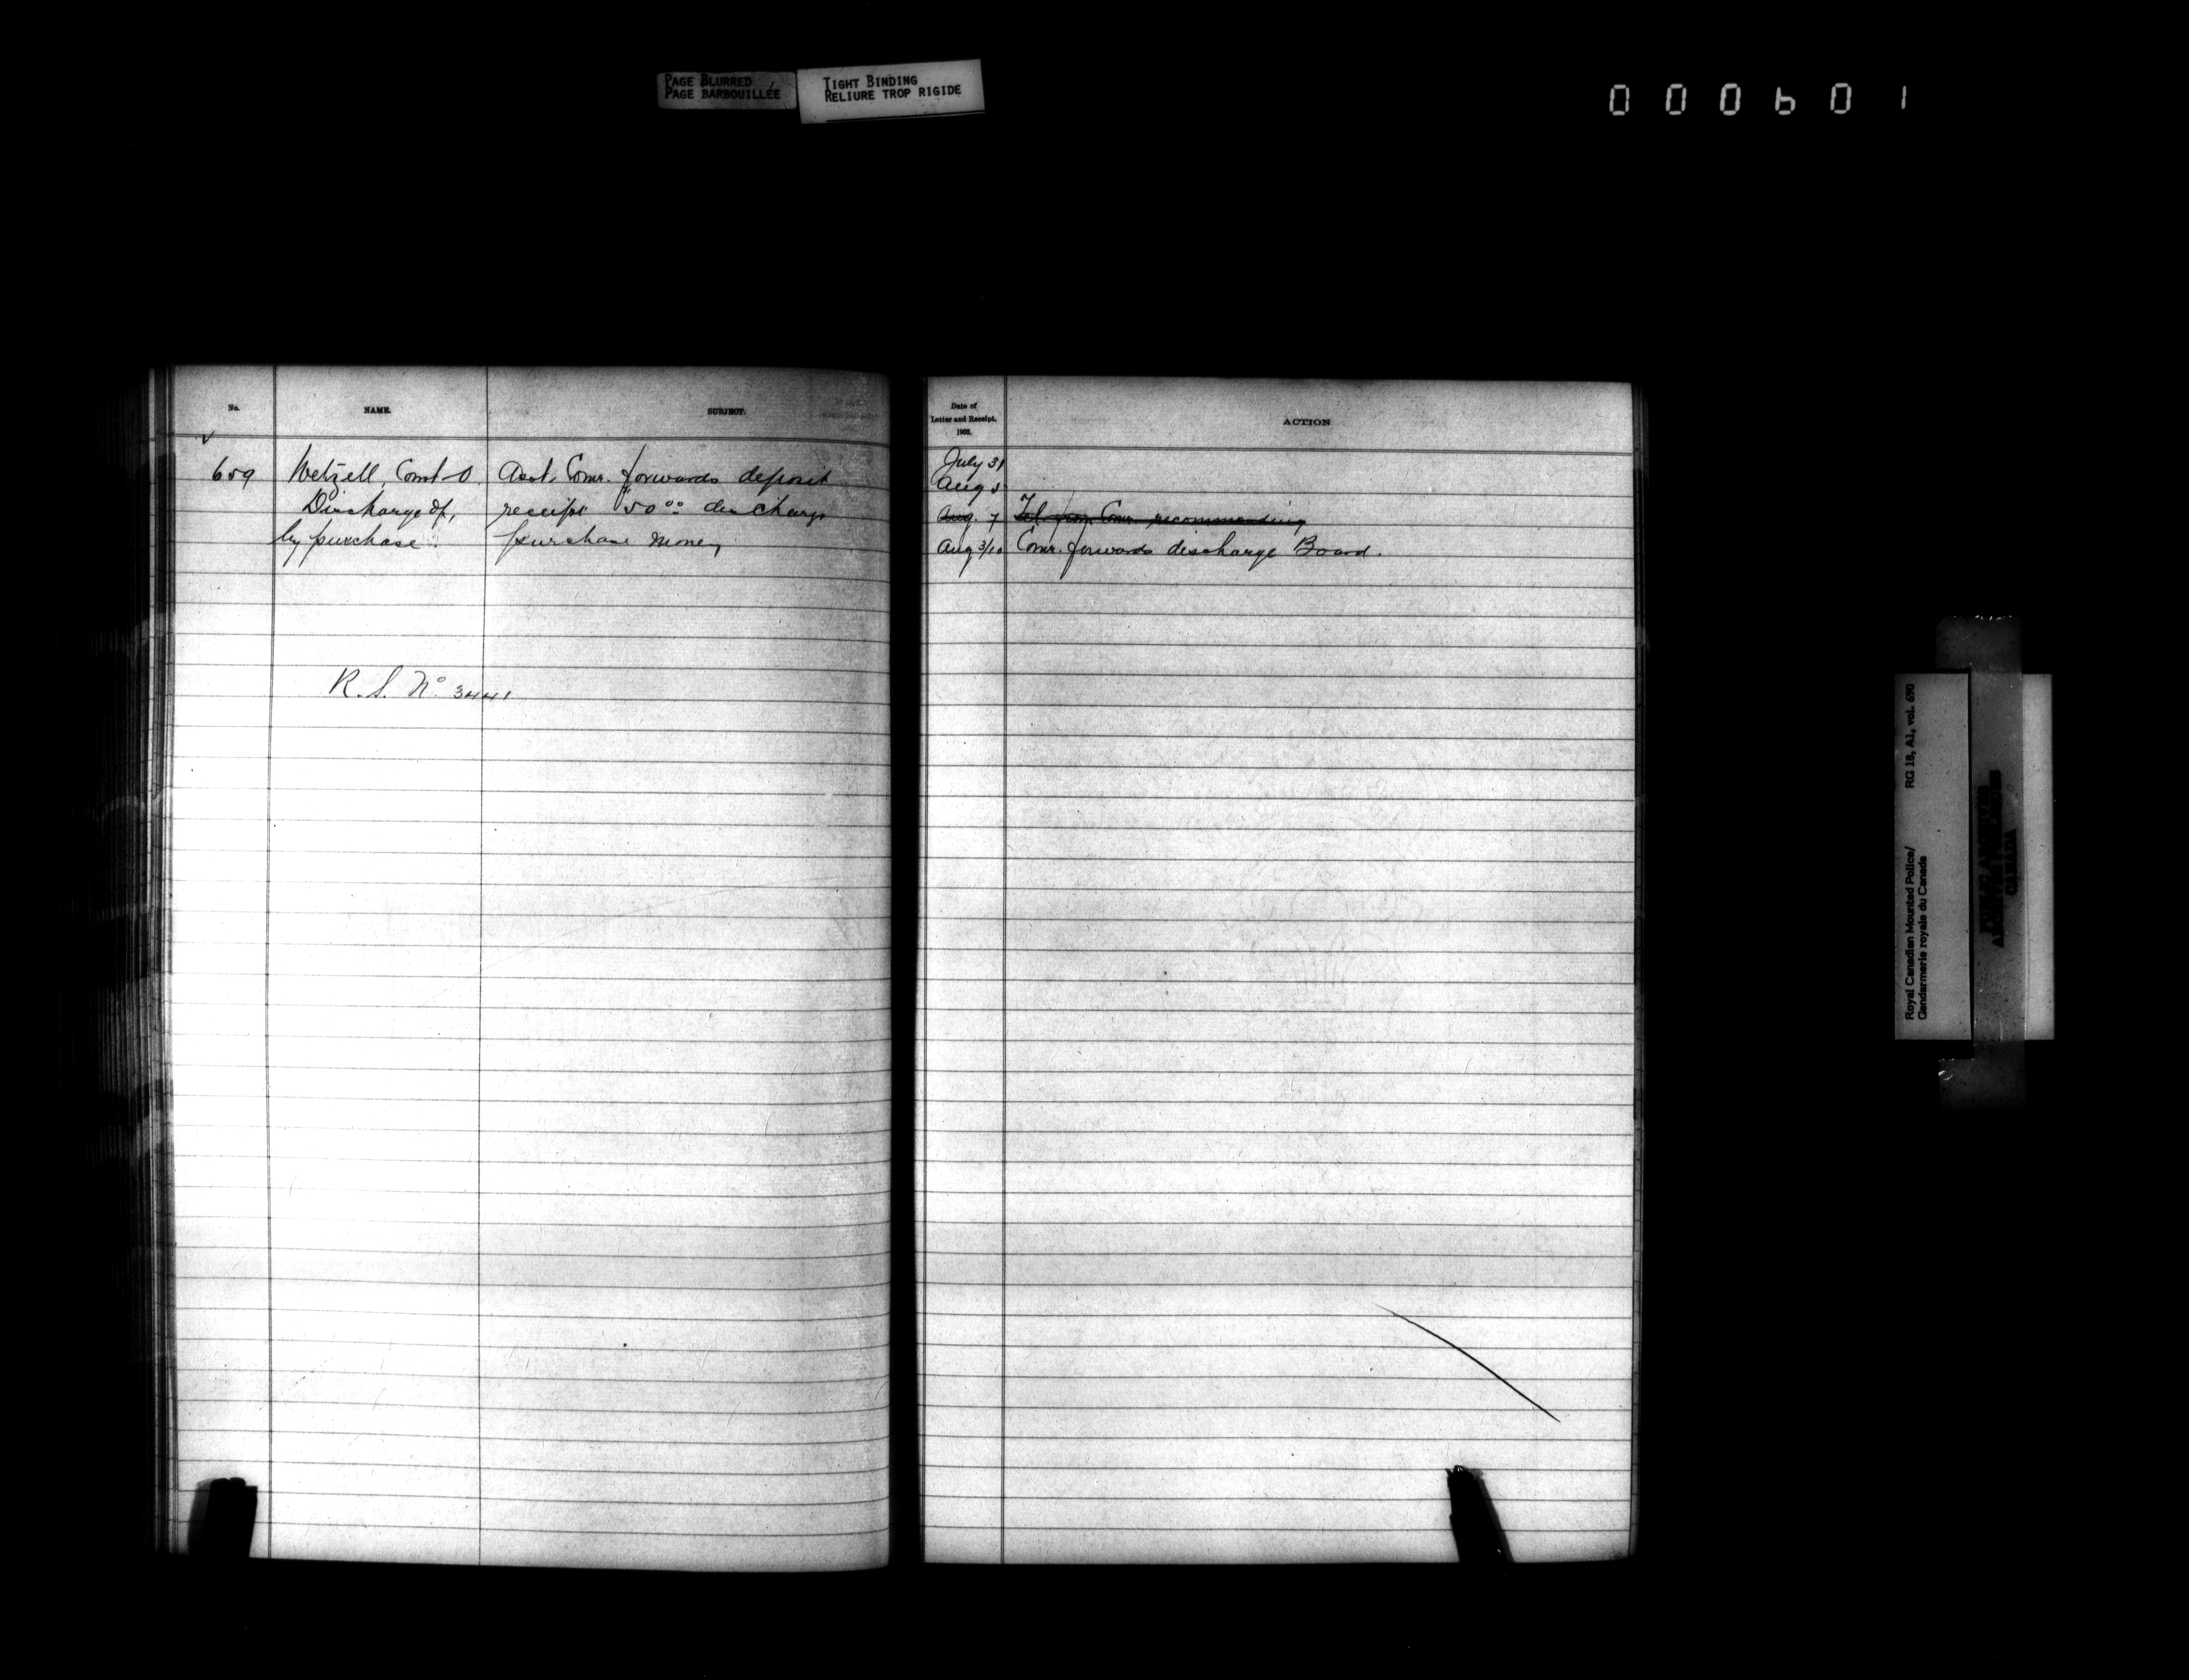 PAGE BLURRED
PAGE BARBOUILLÉE
TIGHT BINDING
RELIURE TROP RIGIDE
000601
No.
NAME.
SUBJECT.
659
Wetzell, Const O.
Discharge of,
by purchase.
Asst. Comr. forwards deposit
receipt $50⁰⁰ discharge
purchase money
R. S. No. 3441
Date of
Letter and Receipt.
1903.
ACTION
July 31
Aug 5
Aug. 7 Tel. from Comr. recommending
Aug 3/10 Comr. forwards discharge Board.
Royal Canadian Mounted Police/
Gendarmerie royale du Canada
RG 18, A1, vol. 690
CANADA